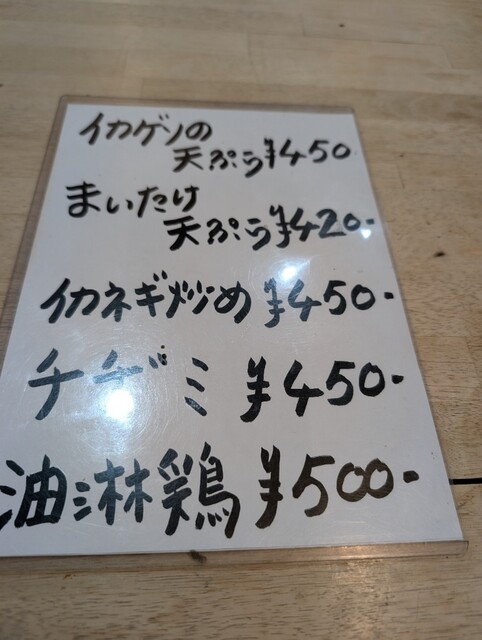 イカゲソの
天ぷら¥450
まいたけ
天ぷら¥420-
イカネギ炒め ¥450-
チヂミ ¥450-
油淋鶏 ¥500-